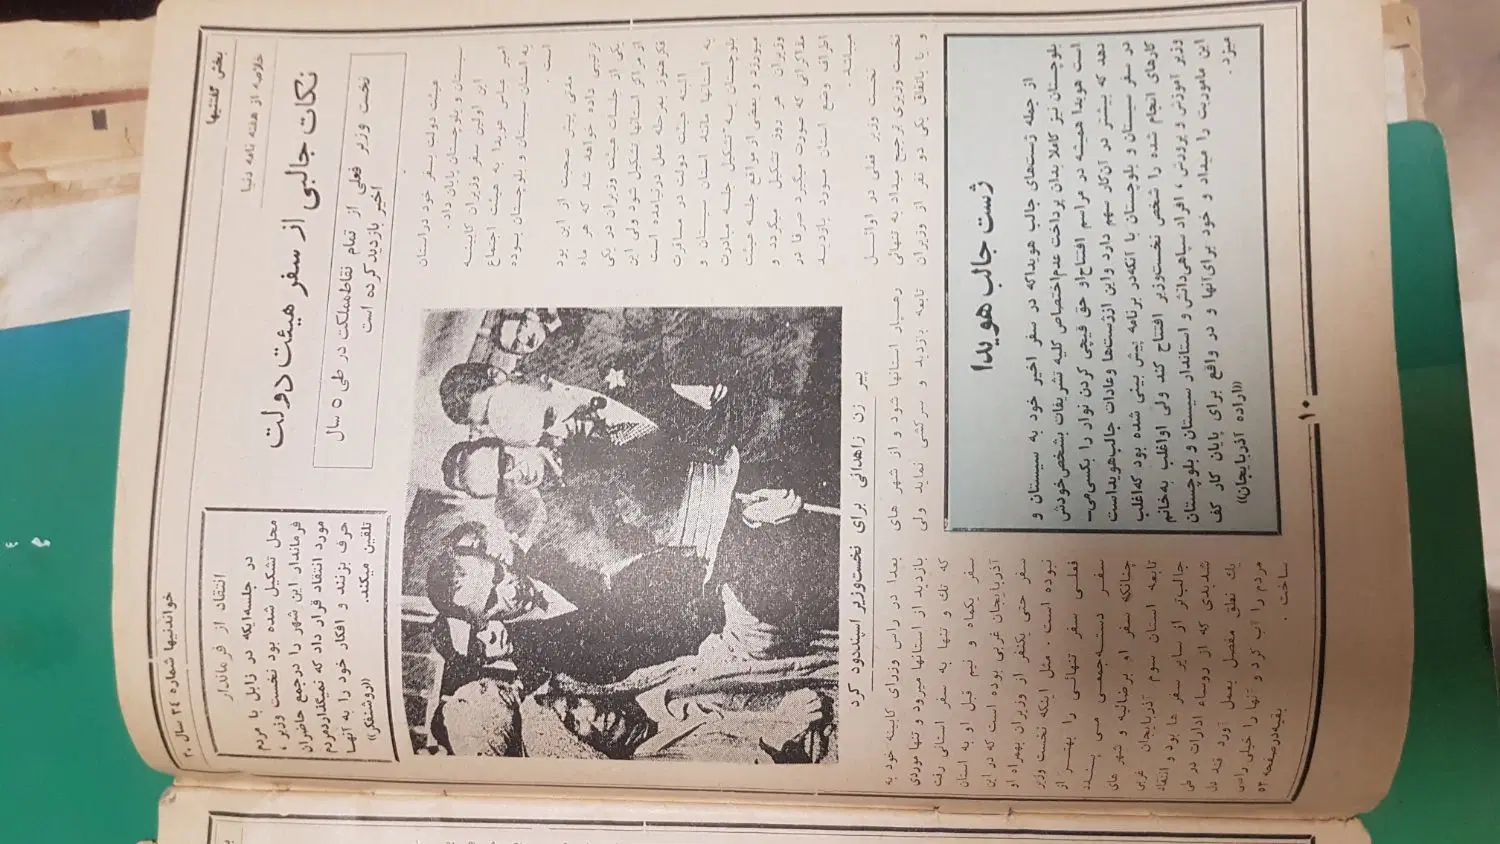 بخش گفتنیها
خواندنیها شماره ۳۴ سال ۳۰
خلاصه از هفته نامه دنیا
نکات جالبی از سفر هیئت دولت
نخست وزیر فعلی از تمام نقاط مملکت در طی ۵ سال
اخیر بازدید کرده است
هیئت دولت سفر خود در استان
سیستان و بلوچستان پایان داد.
این اولین سفر وزیران کابینه
امیر عباس هویدا به هیئت اجتماع
به استان سیستان و بلوچستان بوده
است.
مدتی پیش صحبت از این بود
ترتیبی داده خواهد شد که هر ماه
یکی از جلسات هیئت وزیران در یکی
از مراکز استانها تشکیل شود ولی این
فکر هنوز بمرحله عمل درنیامده است
البته هیئت دولت در مسافرت
به استانها مانند استان سیستان و
بلوچستان به تشکیل جلسه مبادرت
میورزد و بعضی از مواقع جلسه هیئت
وزیران هر روز تشکیل میگردد و
مذاکراتی که صورت میگیرد صرفا در
اطراف وضع استان مورد بازدید
میباشد.
نخست وزیر فعلی در اوائل
نخست وزیری ترجیح میداد به تنهائی
و یا باتفاق یکی دو نفر از وزیران
انتقاد از فرماندار
در جلسه‌ایکه در زابل با مردم
محل تشکیل شده بود نخست وزیر،
فرماندار این شهر را درجمع حاضران
مورد انتقاد قرار داد که نمیگذاردمردم
حرف بزنند و افکار خود را به آنها
تلقین میکند.
«(روشنفکر)»
پیر زن زاهدانی برای نخست‌وزیر اسپند دود کرد
رهسپار استانها شود و از شهر های
تابعه بازدید و سرکشی نماید ولی
بعدا در راس وزرای کابینه خود به
بازدید از استانها میرود و تنها موردی
که تك و تنها به سفر استانی رفت
سفر یکماه و نیم قبل او به استان
آذربایجان غربی بوده است که در این
سفر حتی یکنفر از وزیران بهمراه او
نبوده است. مثل اینکه نخست وزیر
فعلی سفر تنهائی را بهتر از
سفر دسته‌جمعی می پسندد
چنانکه سفر او برضائیه و شهر های
تابعه استان سوم آذربایجان غربی
جالب‌تر از سایر سفر ها بود و انتقاد
شدیدی که از روساء ادارات در طی
یك نطق مفصل بعمل آورد قند دل
مردم را آب کرد و آنها را خیلی راضی
ساخت.
بقیه‌در صفحه ۵۲
ژست جالب هویدا
از جمله ژست‌های جالب هویداکه در سفر اخیر خود به سیستان و
بلوچستان نیز کاملا بدان پرداخت عدم‌اختصاص کلیه تشریفات بشخص‌خودش
است هویدا همیشه در مراسم افتتاح‌او حق قیچی کردن نوار را بکسی‌می‌-
دهد که بیشتر در آن‌کار سهم دارد واین ازژست‌ها وعادات جالب‌هویداست
در سفر سیستان و بلوچستان با آنکه‌در برنامه پیش بینی شده بود که‌اغلب
کارهای انجام شده را شخص نخست‌وزیر افتتاح کند ولی اواغلب به‌خانم
وزیر آموزش و پرورش، افراد سپاهی‌دانش و استاندار سیستان و بلوچستان
این ماموریت را میداد و خود برای‌آنها و در واقع برای پایان کار کف
میزد.
«(اراده آذربایجان)»
۱۰